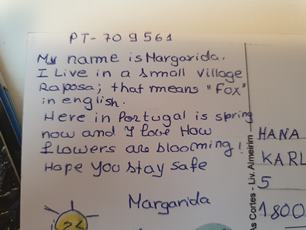 PT-709561
My name is Margarida.
I Live in a small village,
Raposa; that means "Fox"
in english.
Here in Portugal is spring
now and I love How
flowers are blooming!
Hope You stay safe
Margarida
HANA
KARL
5
1800
as Cortes - Liv. Almeirim